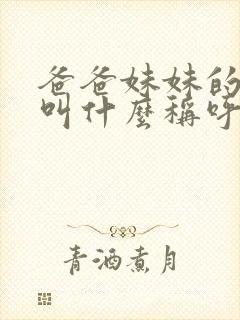 爸爸妹妹的
叫什麼稱呼
青酒煮月